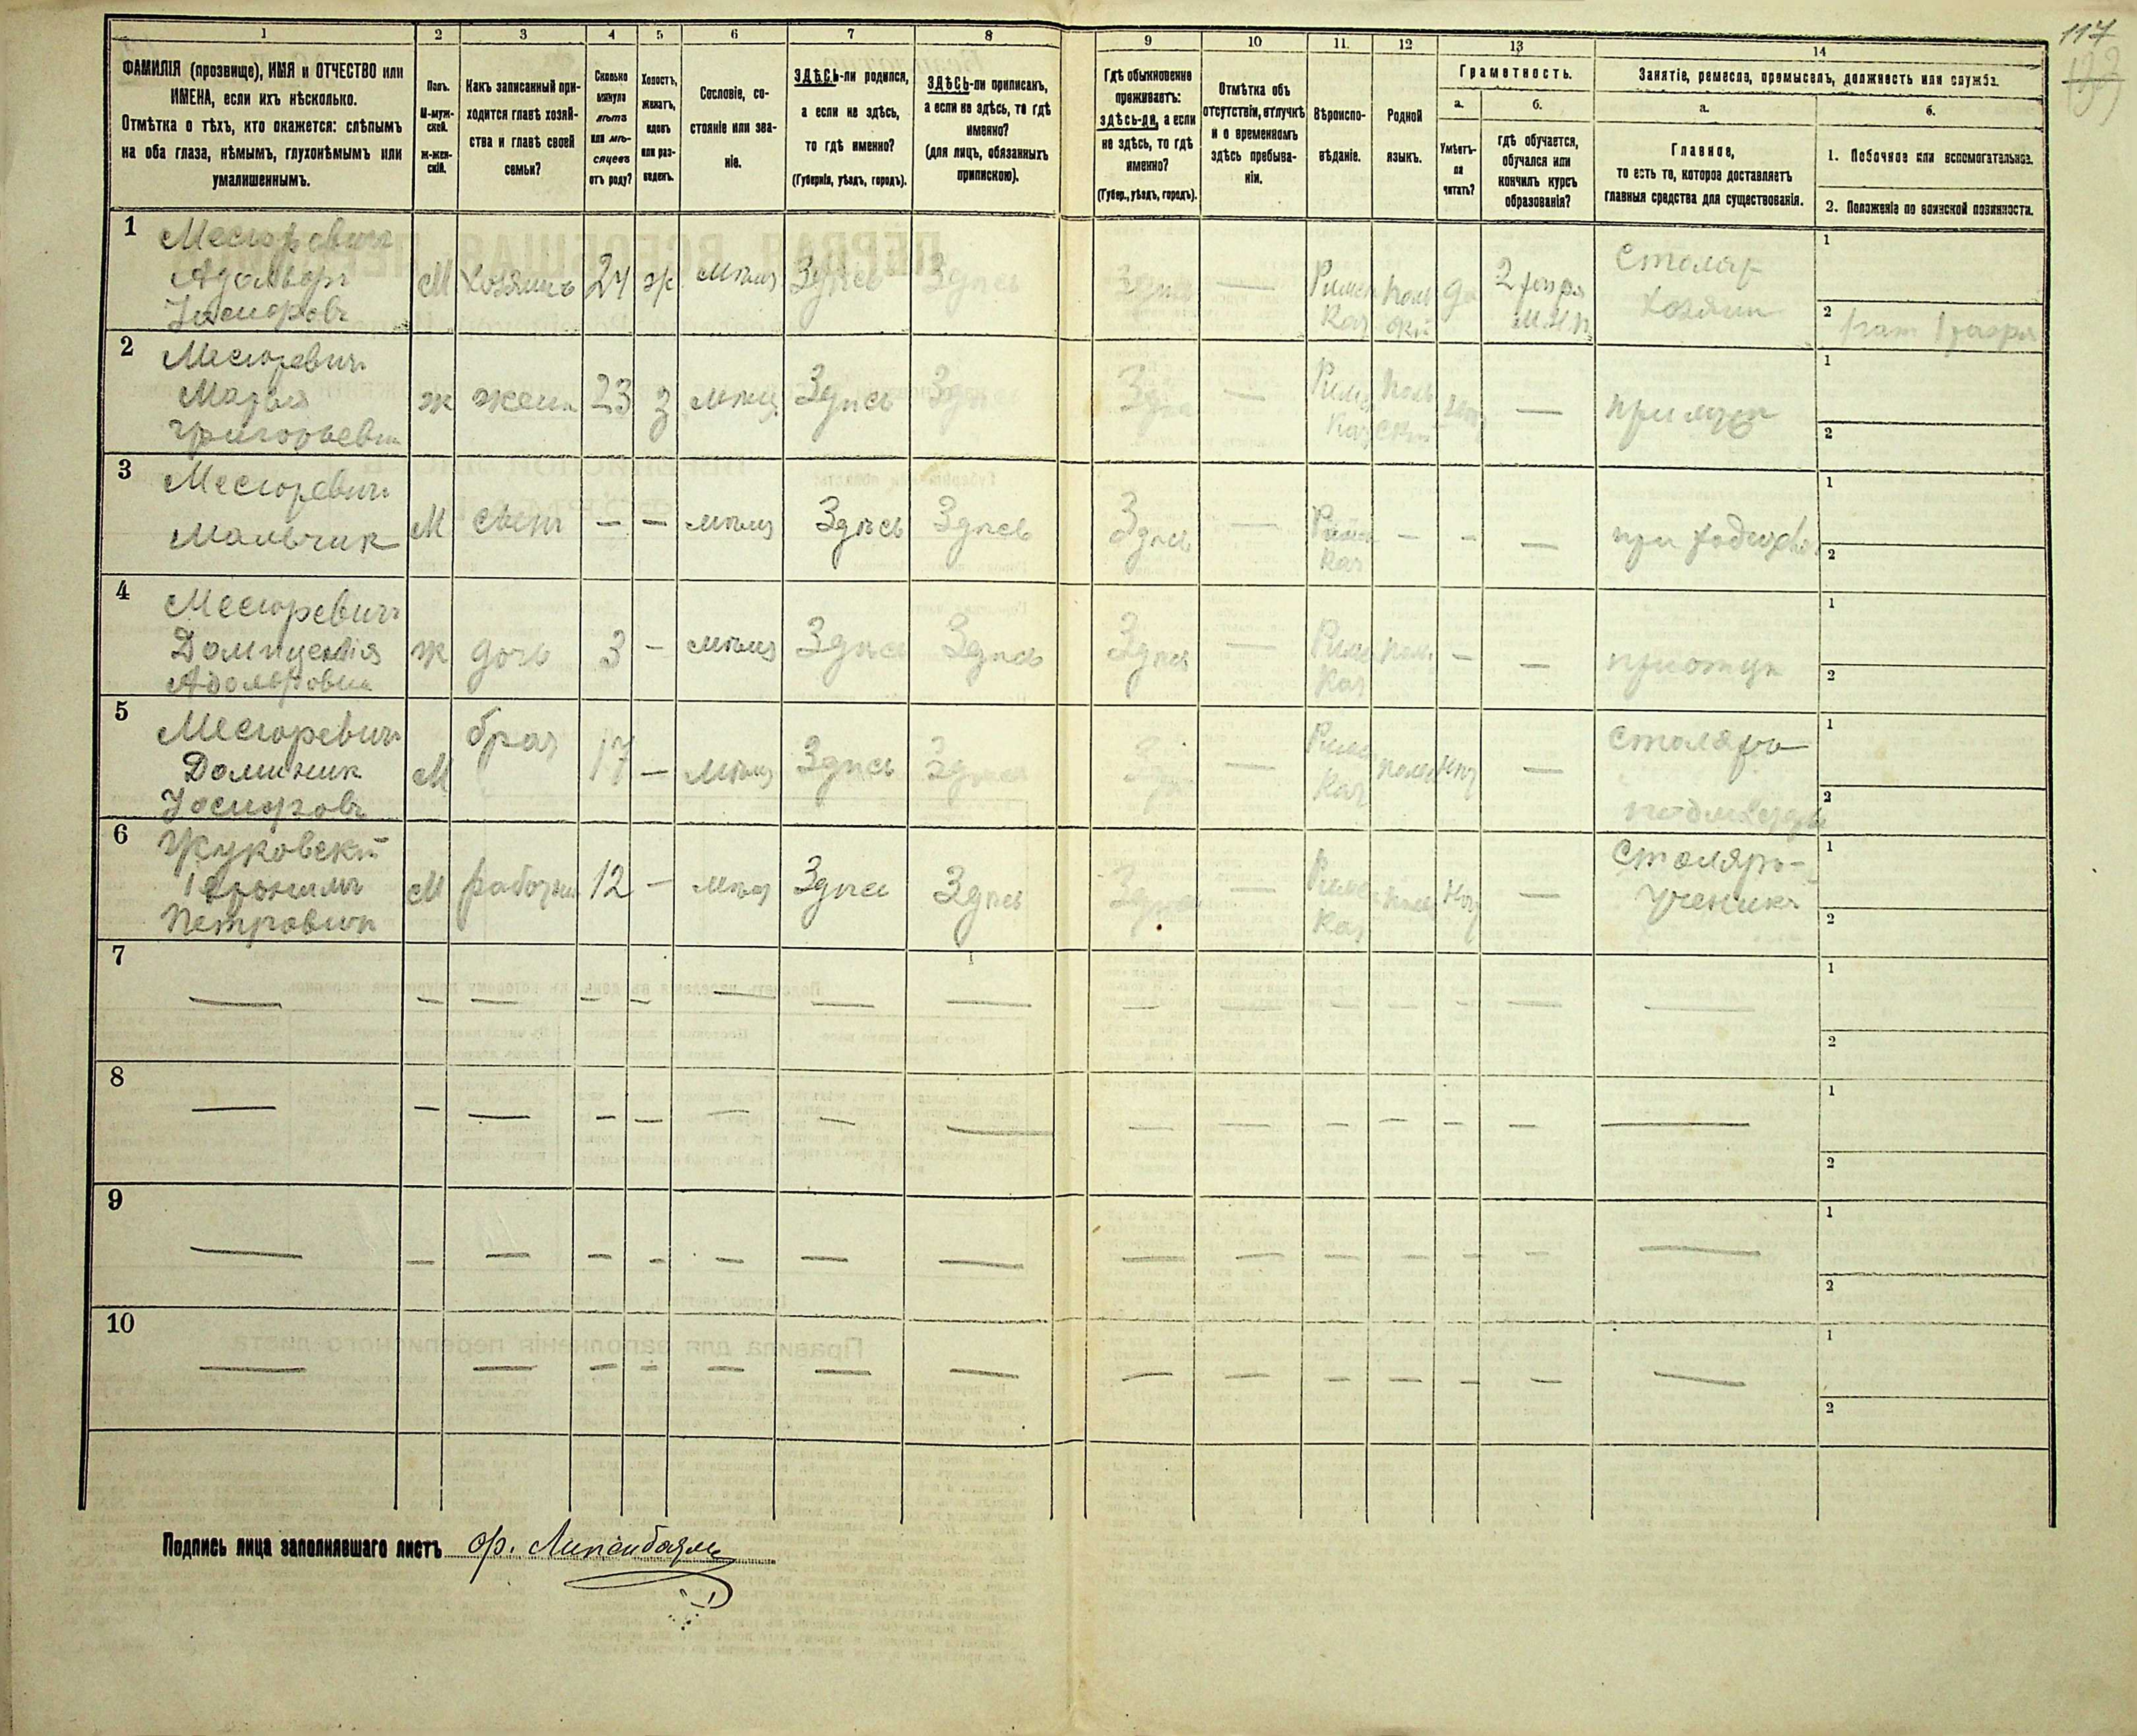 117
1 2 3 4 5 6 7 8 9 10 11. 12 13 14
ФАМИЛІЯ (прозвище), ИМЯ и ОТЧЕСТВО или
ИМЕНА, если ихъ нѣсколько.
Отмѣтка о тѣхъ, кто окажется: слѣпымъ
на оба глаза, нѣмымъ, глухонѣмымъ или
умалишеннымъ.
Полъ.
М-муж-
ской.
ж-жен-
скій.
Какъ записанный при-
ходится главѣ хозяй-
ства и главѣ своей
семьи?
Сколько
минуло
лѣтъ
или мѣ-
сяцевъ
отъ роду?
Холостъ,
женатъ,
вдовъ
или раз-
веденъ.
Сословіе, со-
стояніе или зва-
ніе.
ЗДѢСЬ-ли родился,
а если не здѣсь,
то гдѣ именно?
(Губернія, уѣздъ, городъ).
ЗДѢСЬ-ли приписанъ,
а если не здѣсь, то гдѣ
именно?
(для лицъ, обязанныхъ
припискою).
Гдѣ обыкновенно
проживаетъ:
здѣсь-ли, а если
не здѣсь, то гдѣ
именно?
(Губер., уѣздъ, городъ).
Отмѣтка объ
отсутствіи, отлучкѣ
и о временномъ
здѣсь пребыва-
ніи.
Вѣроиспо-
вѣданіе.
Родной
языкъ.
Грамотность.
а.
Умѣетъ-
ли
читать?
б.
гдѣ обучается,
обучался или
кончилъ курсъ
образованія?
Занятіе, ремесло, промыселъ, должность или служба.
а.
Главное,
то есть то, которое доставляетъ
главныя средства для существованія.
б.
1. Побочное или вспомогательное.
2. Положеніе по воинской повинности.
1
Месюревичъ
Адольфъ
Іосифовъ
М Хозяинъ 24 ж мѣщ Здѣсь Здѣсь Здѣсь —
Римск
Кат
поль
скій
да
2 разр
Столяр
хозяин
1
2
2
Месюревичъ
Марья
Григорьевна
ж жена 23 з мѣщ Здѣсь Здѣсь Здѣсь —
Римс
Кат
поль
ский
—
при муже
1
2
3
Месюревичъ
Мальчик
М сынъ — — мѣщ Здѣсь Здѣсь Здѣсь —
Римск
Кат
— — —
1
2
4
Месюревичъ
Доминцелія
Адольфовна
ж дочь 3 — мѣщ Здѣсь Здѣсь Здѣсь —
Римс
Кат
поль
— —
при отцѣ
1
2
5
Месюревичъ
Доминик
Іосифовъ
М брат 17 — мѣщ Здѣсь Здѣсь —
Римс
Кат
польс
—
Столяръ
1
2
6
Жуковскій
Іеронимъ
Петровичъ
М работник 12 — мѣщ Здѣсь Здѣсь Здѣсь —
Римск
Кат
польс
—
Столяръ-
ученикъ
1
2
7
— — — — — — — — — — — — — — —
1
2
8
— — — — — — — — — — — — — — —
1
2
9
— — — — — — — — — — — — — — —
1
2
10
— — — — — — — — — — — — — —
1
2
Подпись лица заполнявшаго листъ